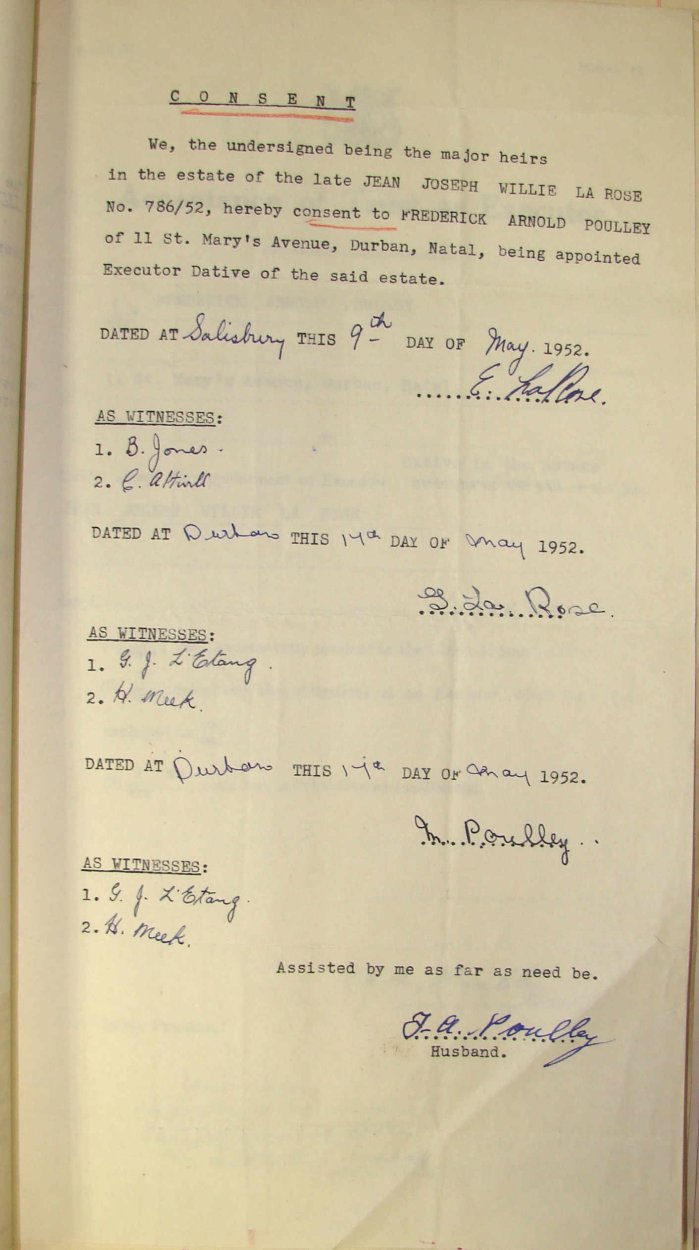 C O N S E N T
We, the undersigned being the major heirs
in the estate of the late JEAN JOSEPH WILLIE LA ROSE
No. 786/52, hereby consent to FREDERICK ARNOLD POULLEY
of 11 St. Mary's Avenue, Durban, Natal, being appointed
Executor Dative of the said estate.
DATED AT Salisbury THIS 9th DAY OF May. 1952.
E. La Rose.
AS WITNESSES:
1. B. Jones.
2. C. Attwill
DATED AT Durban THIS 17th DAY OF May 1952.
G. La. Rose.
AS WITNESSES:
1. G. J. L'Etang.
2. H. Meek.
DATED AT Durban THIS 17th DAY OF May 1952.
M. Poulley.
AS WITNESSES:
1. G. J. L'Etang.
2. H. Meek.
Assisted by me as far as need be.
F. A. Poulley
Husband.